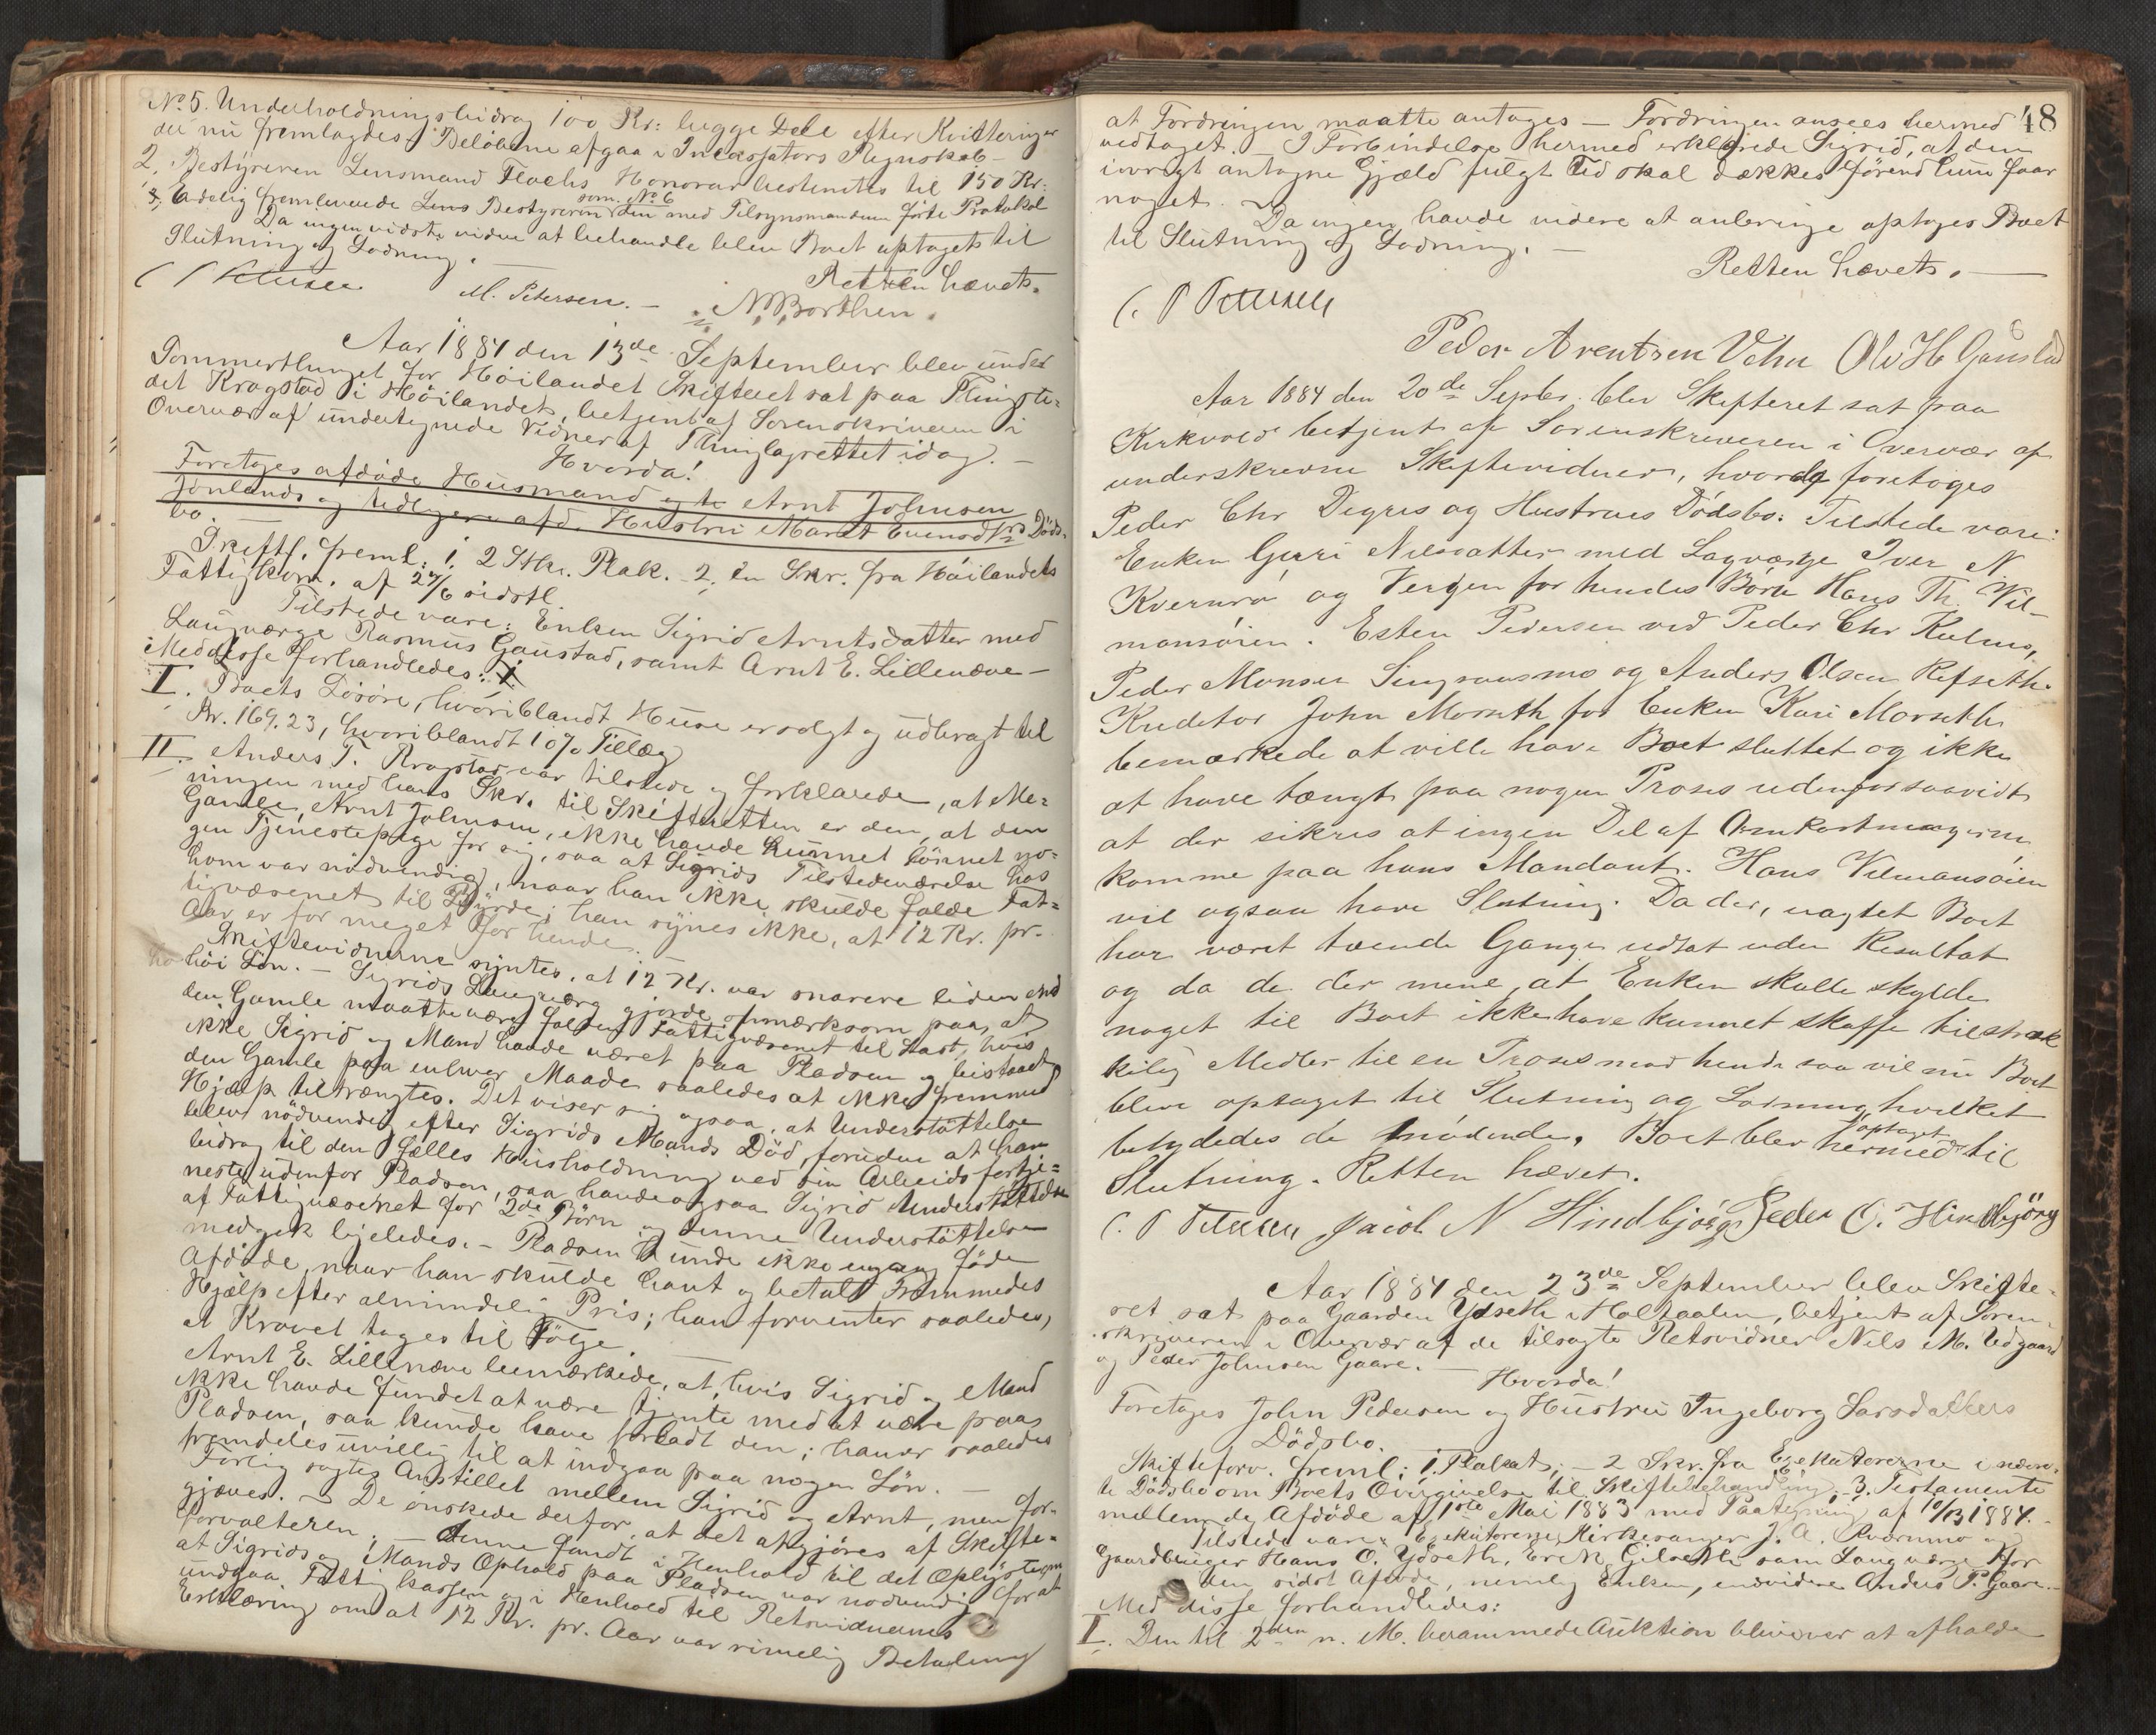 No. 5. Underholdningsbidrag 100 Kr: begge Dele efter Kvitteringer
der nu fremlagdes. Beløbene afgaa i Incassators Regnskab —
2. Bestyreren Lensmand Floehs Honorar bestemtes til 150 Kr:
3, Endelig fremleverede Lens Bestyreren som No 6 den med Tilsynsmanden førte Protokol
Da ingen vidste videre at behandle blev Boet optaget til
Slutning og Lodning. —
Retten hævets.
C P Petersen M. Petersen. — N. Borthen.
Aar 1884 den 13de September blev under
Sommerthinget for Höilandet Skifteret sat paa Thingste=
det Kragstad i Höilandet, betjent af Sorenskriveren i
Overvær af undertegnede Vidner af Thinglagrettet idag. —
Hvorda!
Foretages afdøde Husmand Arnt Johnsen
Jönlands og tidligere afd. Hustru Maret Evensdtrs Döds-
bo. —
Skiftf. freml: 1, 2 Stkr. Plak. 2, en Skr. fra Höilandets
Fattigkom. af 27/6 sidstl.
Tilstede vare: Enken Sigrid Arntsdatter med
Laugværge Rasmus Gaustad, samt Arnt E. Lillenæve —
Med disse forhandledes:
I. Boets Lösöre, hvoriblandt Huse er solgt og udbragt til
Kr. 169.23, hvoriblandt 10% Tillæg
II. Anders T. Kragstad var tilstede og forklarede, at Me=
ningen med hans Skr. til Skifteretten er den, at den
Gamle, Arnt Johnsen, ikke havde kunnet lönnet no=
gen Tjenestepige for sig, saa at Sigrids Tilstedeværelse hos
ham var nödvendig, naar han ikke skulde falde Fat=
tigvæsenet til Byrde; han synes ikke, at 12 Kr. pr.
Aar er for meget for hende.
Skiftevidnerne syntes, at 12 Kr. var snarere liden end
höi Lön. — Sigrids Laugværge gjorde opmærksom paa, at
den Gamle maatte være falden Fattigvæsenet til Last, hvis
ikke Sigrid og Mand havde været paa Pladsen og bistaaet
den Gamle paa enhver Maade saaledes at ikke fremmed
Hjælp tiltrængtes. Det viser sig ogsaa, at Understøttelse
blev nödvendig efter Sigrids Mands Död, foruden at han
bidrog til den fælles Husholdning ved sin Arbeidsfortje=
neste udenfor Pladsen, saa havde ogsaa Sigrid Understöttelse
af Fattigvæsenet for 2de Börn og denne Understöttelse
medgik ligeledes. — Pladsen kunde ikke engang föde
Afdöde, naar han skulde havt og betalt Fremmedes
Hjælp efter almindelig Pris; han forventer saaledes,
at Kravet tages til Fölge. —
Arnt E. Lillenæve bemærkede, at, hvis Sigrid og Mand
ikke havde fundet at være tjente med at være paa
Pladsen, saa kunde have forladt den; han er saaledes
fremdeles uvillig til at indgaa paa nogen Lön. —
Forlig sögtes anstillet mellem Sigrid og Arnt, men for-
gjæves. — De önskede derfor, at det afgjöres af Skifte=
forvalteren; — denne fandt i Henhold til det Oplyste om
at Sigrids og Mands Ophold paa Pladsen var nödvendig for at
undgaa Fattigkassen og i Henhold til Retsvidnernes
Erklæring om at 12 Kr. pr. Aar var rimelig Betaling
48
at Fordringen maatte antages — Fordringen ansees hermed
vedtaget. — I Forbindelse hermed erklærede Sigrid, at den
iövrigt antagne Gjæld fuldt ud skal dækkes förend hun faar
noget. — Da ingen havde videre at anbringe optoges Boet
til Slutning og Lodning. —
Retten hævets. —
C. P Petersen
Peder Arentsen Vehn Ole H Gaustad
Aar 1884 den 20de Septbr. blev Skifteret sat paa
Kirkvold betjent af Sorenskriveren i Overvær af
underskrevne Skiftevidner, hvorda foretoges
Peder Chr Digres og Hustrues Dödsbo. Tilstede vare:
Enken Guri Nilsdatter med Lagværge Iver N
Kvernrö og Vergen for hendes Börn Hans Th. Vil-
mansöien. Esten Pedersen ved Peder Chr Kulmo,
Peder Monsen Singsaasmo og Anders Olsen Refseth.
Kreditor John Morseth for Enken Kari Morseth
bemærkede at ville have Boet sluttet og ikke
at have tænkt paa nogen Proses udenfor saavidt
at der sikres at ingen Del af Omkostningerne
komme paa hans Mandant. Hans Vilmansöien
vil ogsaa have Slutning. Da der, uagtet Boet
har været tvende Gange udsat uden Resultat
og da de der mene, at Enken skulle skylde
noget til Boet ikke have kunnet skaffe tilstræk
kelig Midler til en Proses mod hende saa vil nu Boet
blive optaget til Slutning og Lodning, hvilket
betydedes de mödende. Boet blev hermed optaget til
Slutning. Retten hævet.
C. P Petersen Jacob N Hindbjörg Peder O. Hindbjörg
Aar 1884 den 23de September blev Skifte-
ret sat paa Gaarden Ydseth i Holtaalen, betjent af Soren-
skriveren i Overvær af de tilsagte Retsvidner Nils M. Udgaard
og Peder Johnsen Gaare. —
Hvorda!
Foretages John Pedersen og Hustru Ingeborg Larsdatters
Dödsbo.
Skifteforv. freml: 1. Plakat; — 2 Skr. fra Exekutorerne i nærv-
te Dödsbo om Boets Overgivelse til Skiftebehandling — 3. Testamente
mellem de Afdöde af 1ste Mai 1883 med Paategning af 10/3 1884. —
Tilstede vare: Exekutorerne, Kirkesanger J. A. Kvernmo og
Gaardbruger Hans O. Ydseth, Erik Gilseth som Laugværge for
den sidst Afdöde, nemlig Enken, endvidere Anders P. Gaare. —
Med disse forhandledes:
I. Den til 2den n. M. berammede Auktion bliver at afholde